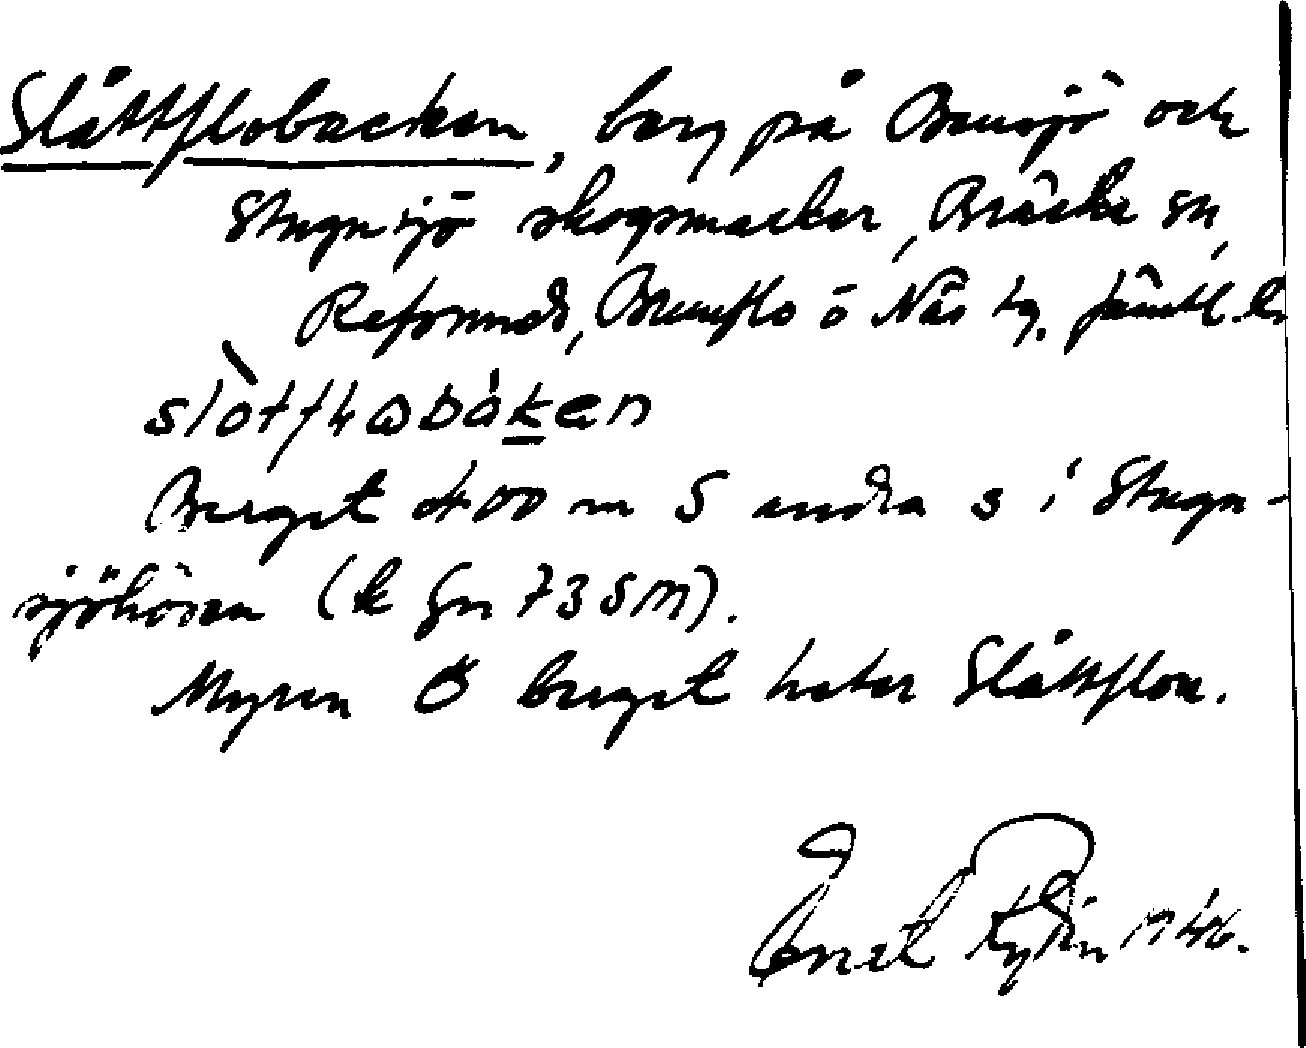 Slåttflobacken, berg på Bensjö och
Stugusjö skogsmarker, Bräcke sn,
Refsunds, Brunflo o Näs tg. Jämtl. l.
slòtfɬωbáken
Berget 400 m S andra s i Stugu-
sjöhösen (k Gn 735 M).
Myren Ö berget heter Slåttflon.
1946.